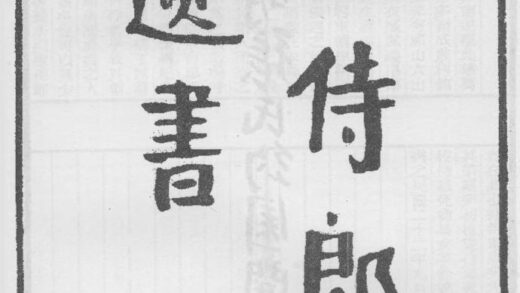 侍郎
遺書